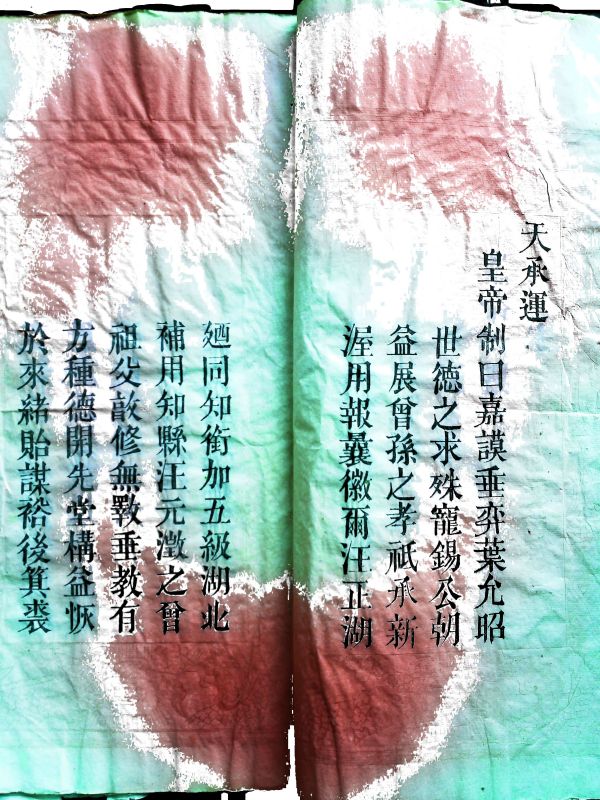 天承運
皇帝制曰嘉謨垂弈葉允昭
世德之求殊寵錫公朝
益展曾孫之孝祇承新
渥用報曩徽爾汪正湖
廼同知銜加五級湖北
補用知縣汪元澂之曾
祖父敦修無斁垂教有
方種德開先堂構益恢
於來緒貽謀裕後箕裘